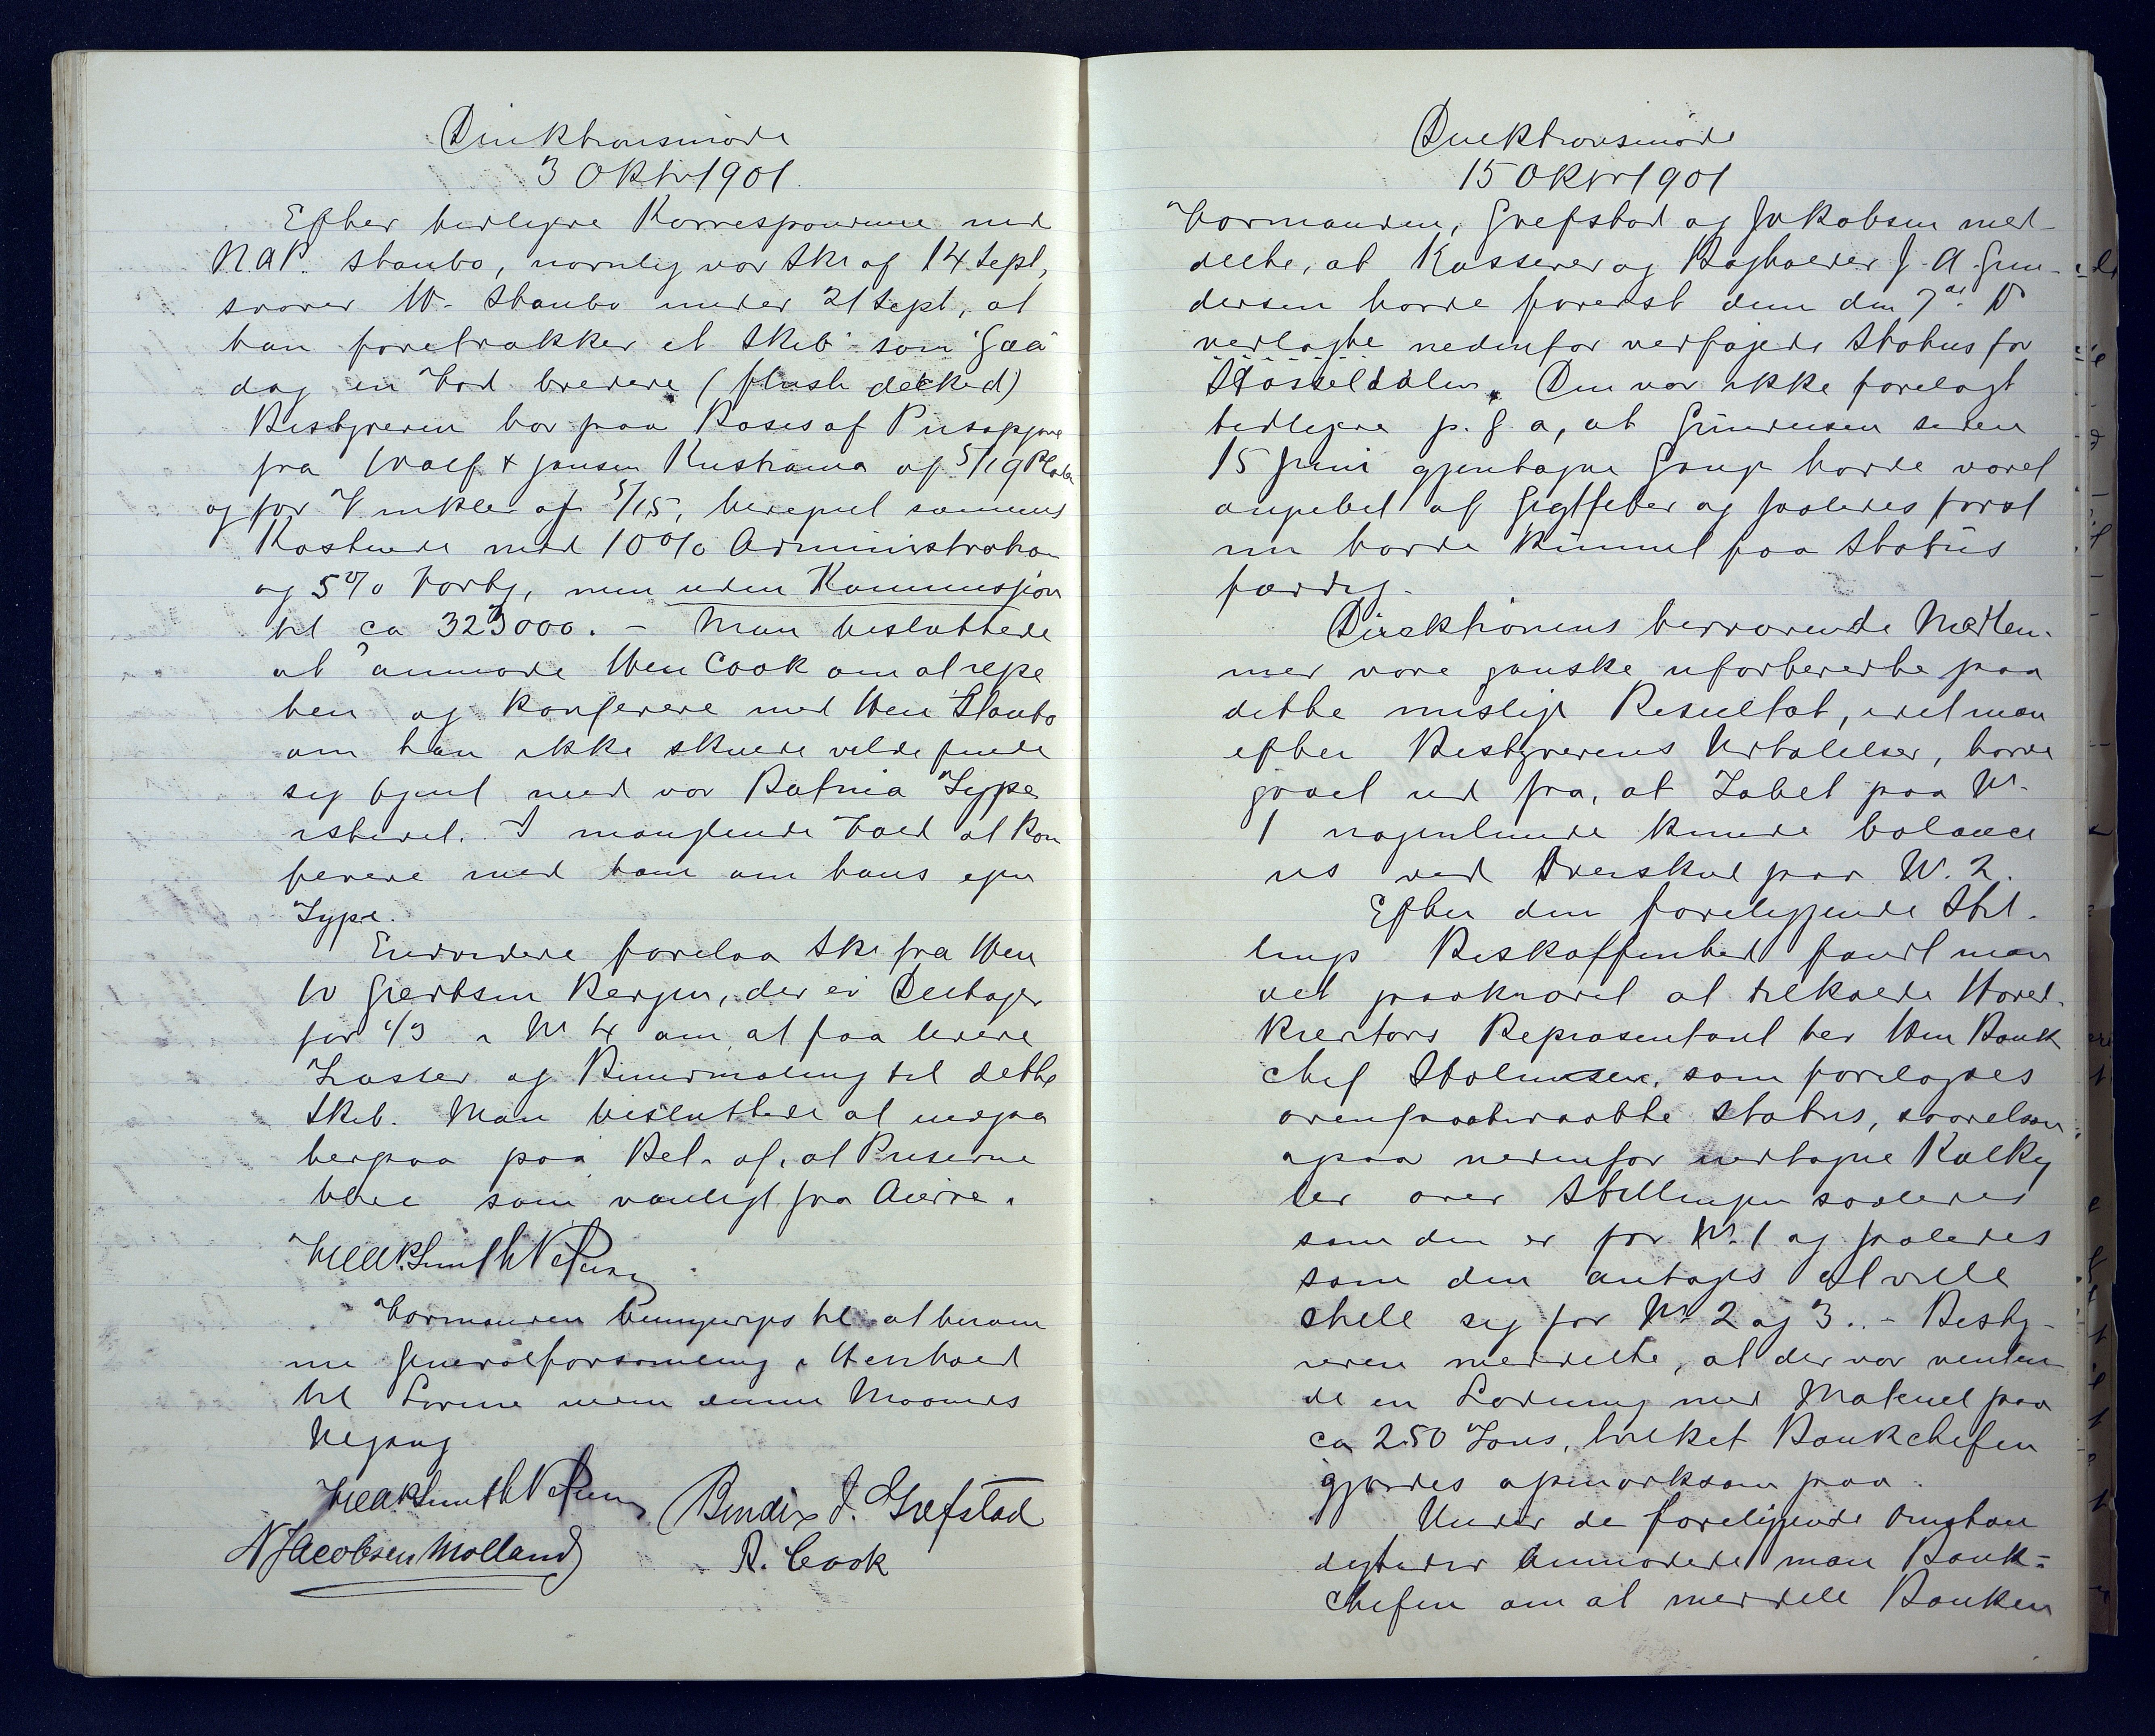 Direktionsmøde
3 Oktbr 1901.
Efter tidligere Korrespondence med
N.A.P. Staubo, navnlig vor Skr af 14 Sept,
svarer Hr. Staubo under 21 Sept, at
han foretrækker et Skib som "Gæa"
dog en Fod bredere (flush decked)
Bestyreren har paa Basis af Prisopgave
fra Wolf & Jansen Kristiania af 5/19 Plader
og for Vinkler af 5/15, beregnet sammes
Kostende med 10% Administration
og 5% Fortj, men uden Kommission
til ca 323000. – Man besluttede
at anmode Herr Cook om at rejse
hen og konferere med Herr Staubo
om han ikke skulde ville finde
sig tjent med vor Batnia Type
istedet. I manglende Fald at kon
ferere med ham om hans egen
Type.
Endvidere forelaa Skr fra Herr
W Giertsen Bergen, der er Deltager
for 1/3 i Nr 4 om at faa levere
Trosser og Bundmaling til dette
Skib. Man besluttede at indgaa
herpaa paa Bet. af, at Priserne
blive som vanligt fra Andre.
Formanden bemyndiges til at beram
me Generalforsamling i Henhold
til Lovene inden denne Maaneds
Udgang
Bendix J. Grefstad
N Jacobsen Molland
R. Cook
Direktionsmøde
15 Oktbr 1901
Formanden, Grefstad og Jakobsen med-
delte, at Kasserer og Bogholder J. A. Gun-
dersen havde forevist dem den 7de ds
vedlagte nedenfor vedføjede Status for
Stösseldalen. Den var ikke forelagt
tidligere p. g. a, at Gundersen siden
15 Juni gjentagne Gange havde været
angrebet af Gigtfeber og saaledes først
nu havde kunnet faa Status
færdig.
Direktionens herværende Medlem-
mer vare ganske uforberedte paa
dette mislige Resultat, idet man
efter Bestyrerens Udtalelser, havde
gaaet ud fra, at Tabet paa Nr.
1 nogenlunde kunde balance
res ved Overskud paa Nr. 2.
Efter den foreliggende Stil-
lings Beskaffenhed fandt man
det paakrævet at tilkalde Hoved-
kreditors Repræsentant her Herr Bank
chef Salvesen, som forelagdes
ovenpaaberaabte Status, saavelsom
ogsaa nedenfor indtagne Kalky
ler over Stillingen saaledes
som den er for Nr. 1 og saaledes
som den antages at ville
stille sig for Nr 2 og 3. – Besty-
reren meddelte, at der var venten-
de en Ladning med Material paa
ca 250 Tons, hvilket Bankchefen
gjordes opmærksom paa.
Under de foreliggende Omstæn
digheder anmodede man Bank-
chefen om at meddele Banken